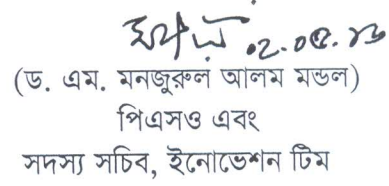 ০২.০৫.২৬
(ড. এম. মনজুরুল আলম মন্ডল)
পিএসও এবং
সদস্য সচিব, ইনোভেশন টিম